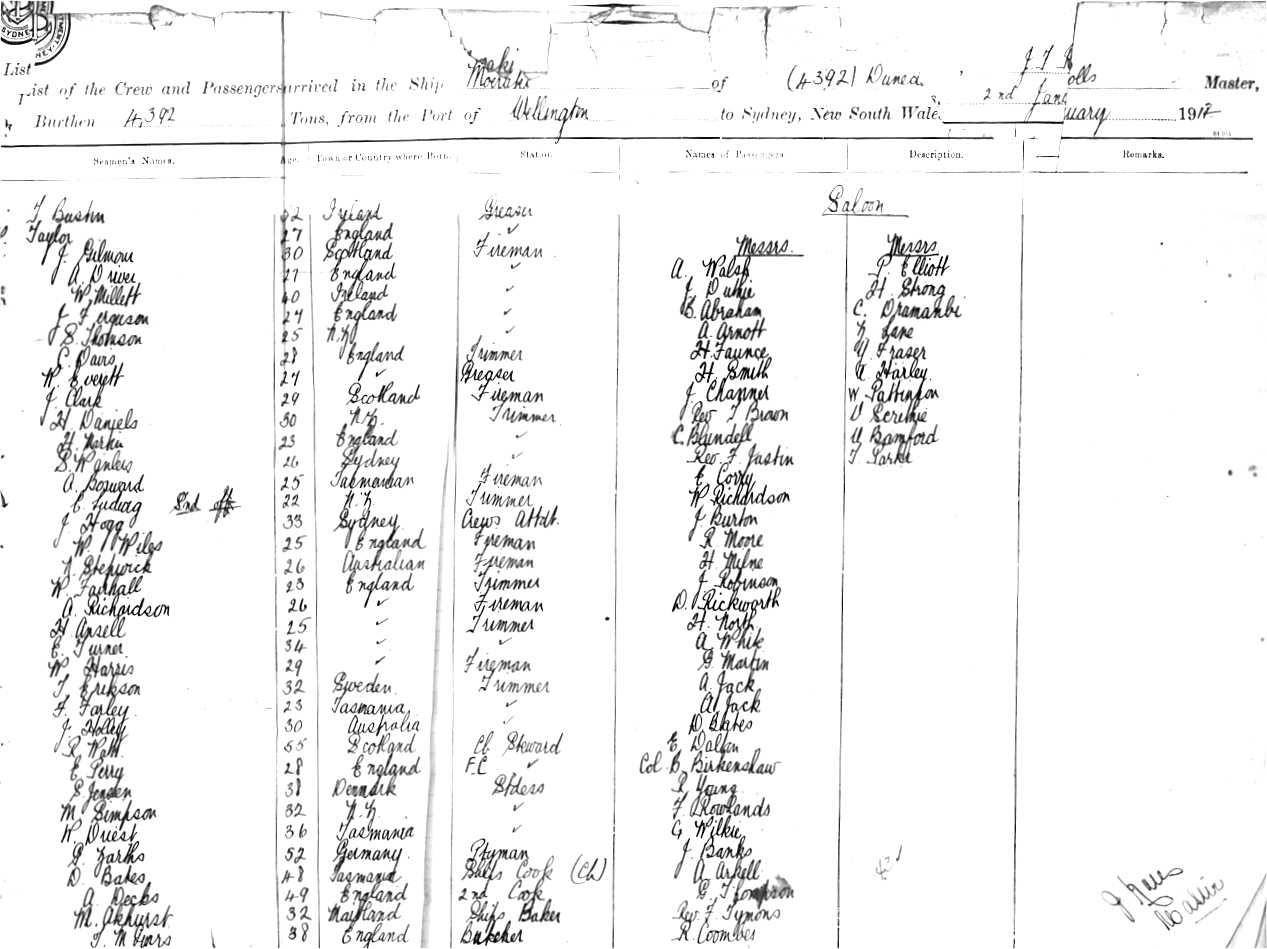 SYDNEY
List
List of the Crew and Passengers arrived in the Ship Moeraki of (4392) Duned J T Rolls Master,
Burthen 4,392 Tons, from the Port of Wellington to Sydney, New South Wales, 2nd January 1912
Seamen's Names. Age. Town or Country where Born. Station. Names of Passengers Description. Remarks.
Saloon
T Bushn 32 Ireland Greaser
Taylor 27 England ✓
J. Gilmour 30 Scotland Fireman Messrs. Messrs
A. Driver 27 England ✓ A. Walsh P. Elliott
W. Millett 40 Ireland ✓ J Duthie H. Strong
J Ferguson 27 England ✓ B. Abraham C. Dramanbi
S. Thomson 25 N.Z ✓ A. Arnott N Lane
C. Davis 28 England Trimmer H. Faunce Y Fraser
W Everett 27 ✓ Greaser H. Smith A Harley
J. Clark 29 Scotland Fireman J Channer W Pattinson
H Daniels 30 N.Z. Trimmer Rev T Brown V Scrimie
H. Parker 23 England ✓ C. Blundell U Bamford
S. Wanless 26 Sydney ✓ Rev F. Justin T Parker
A. Boyward 25 Tasmanian Fireman E Corry
E. Ludwig 2nd 22 N.Z Trimmer W Richardson
J Hogg 33 Sydney Crews Attdt. J Burton
W. Wiles 25 England Fireman R Moore
Sherwick 26 Australian Fireman H. Milne
W. Fairhall 23 England Trimmer J Robinson
A. Richardson 26 ✓ Fireman D. Rickworth
H Ansell 25 ✓ Trimmer H. North
E. Turner 34 ✓ ✓ A White
W Harris 29 ✓ Fireman G. Martin
T Erikson 32 Sweden. Trimmer A. Jack
F. Farley 23 Tasmania ✓ A. Jack
J. Holley 30 Australia ✓ D Bates
R Watt 55 Scotland Ch. Steward E Dalton
E Perry 28 England F.C ✓ Col. B. Birkenshaw
S Jensen 38 Denmark Stdess R Young
M. Simpson 32 N.Z ✓ F. Rowlands
W Driest 36 Tasmania ✓ G Wilkie
G. Zarths 52 Germany Ptyman J. Banks
D. Bates 48 Tasmania Ships Cook (Ch) A Arkell
A. Decks 49 England 2nd Cook E. Thompson
M. Akhurst 32 Maitland Ships Baker Rev. F Tymons
T. M 38 England Butcher R Coombes